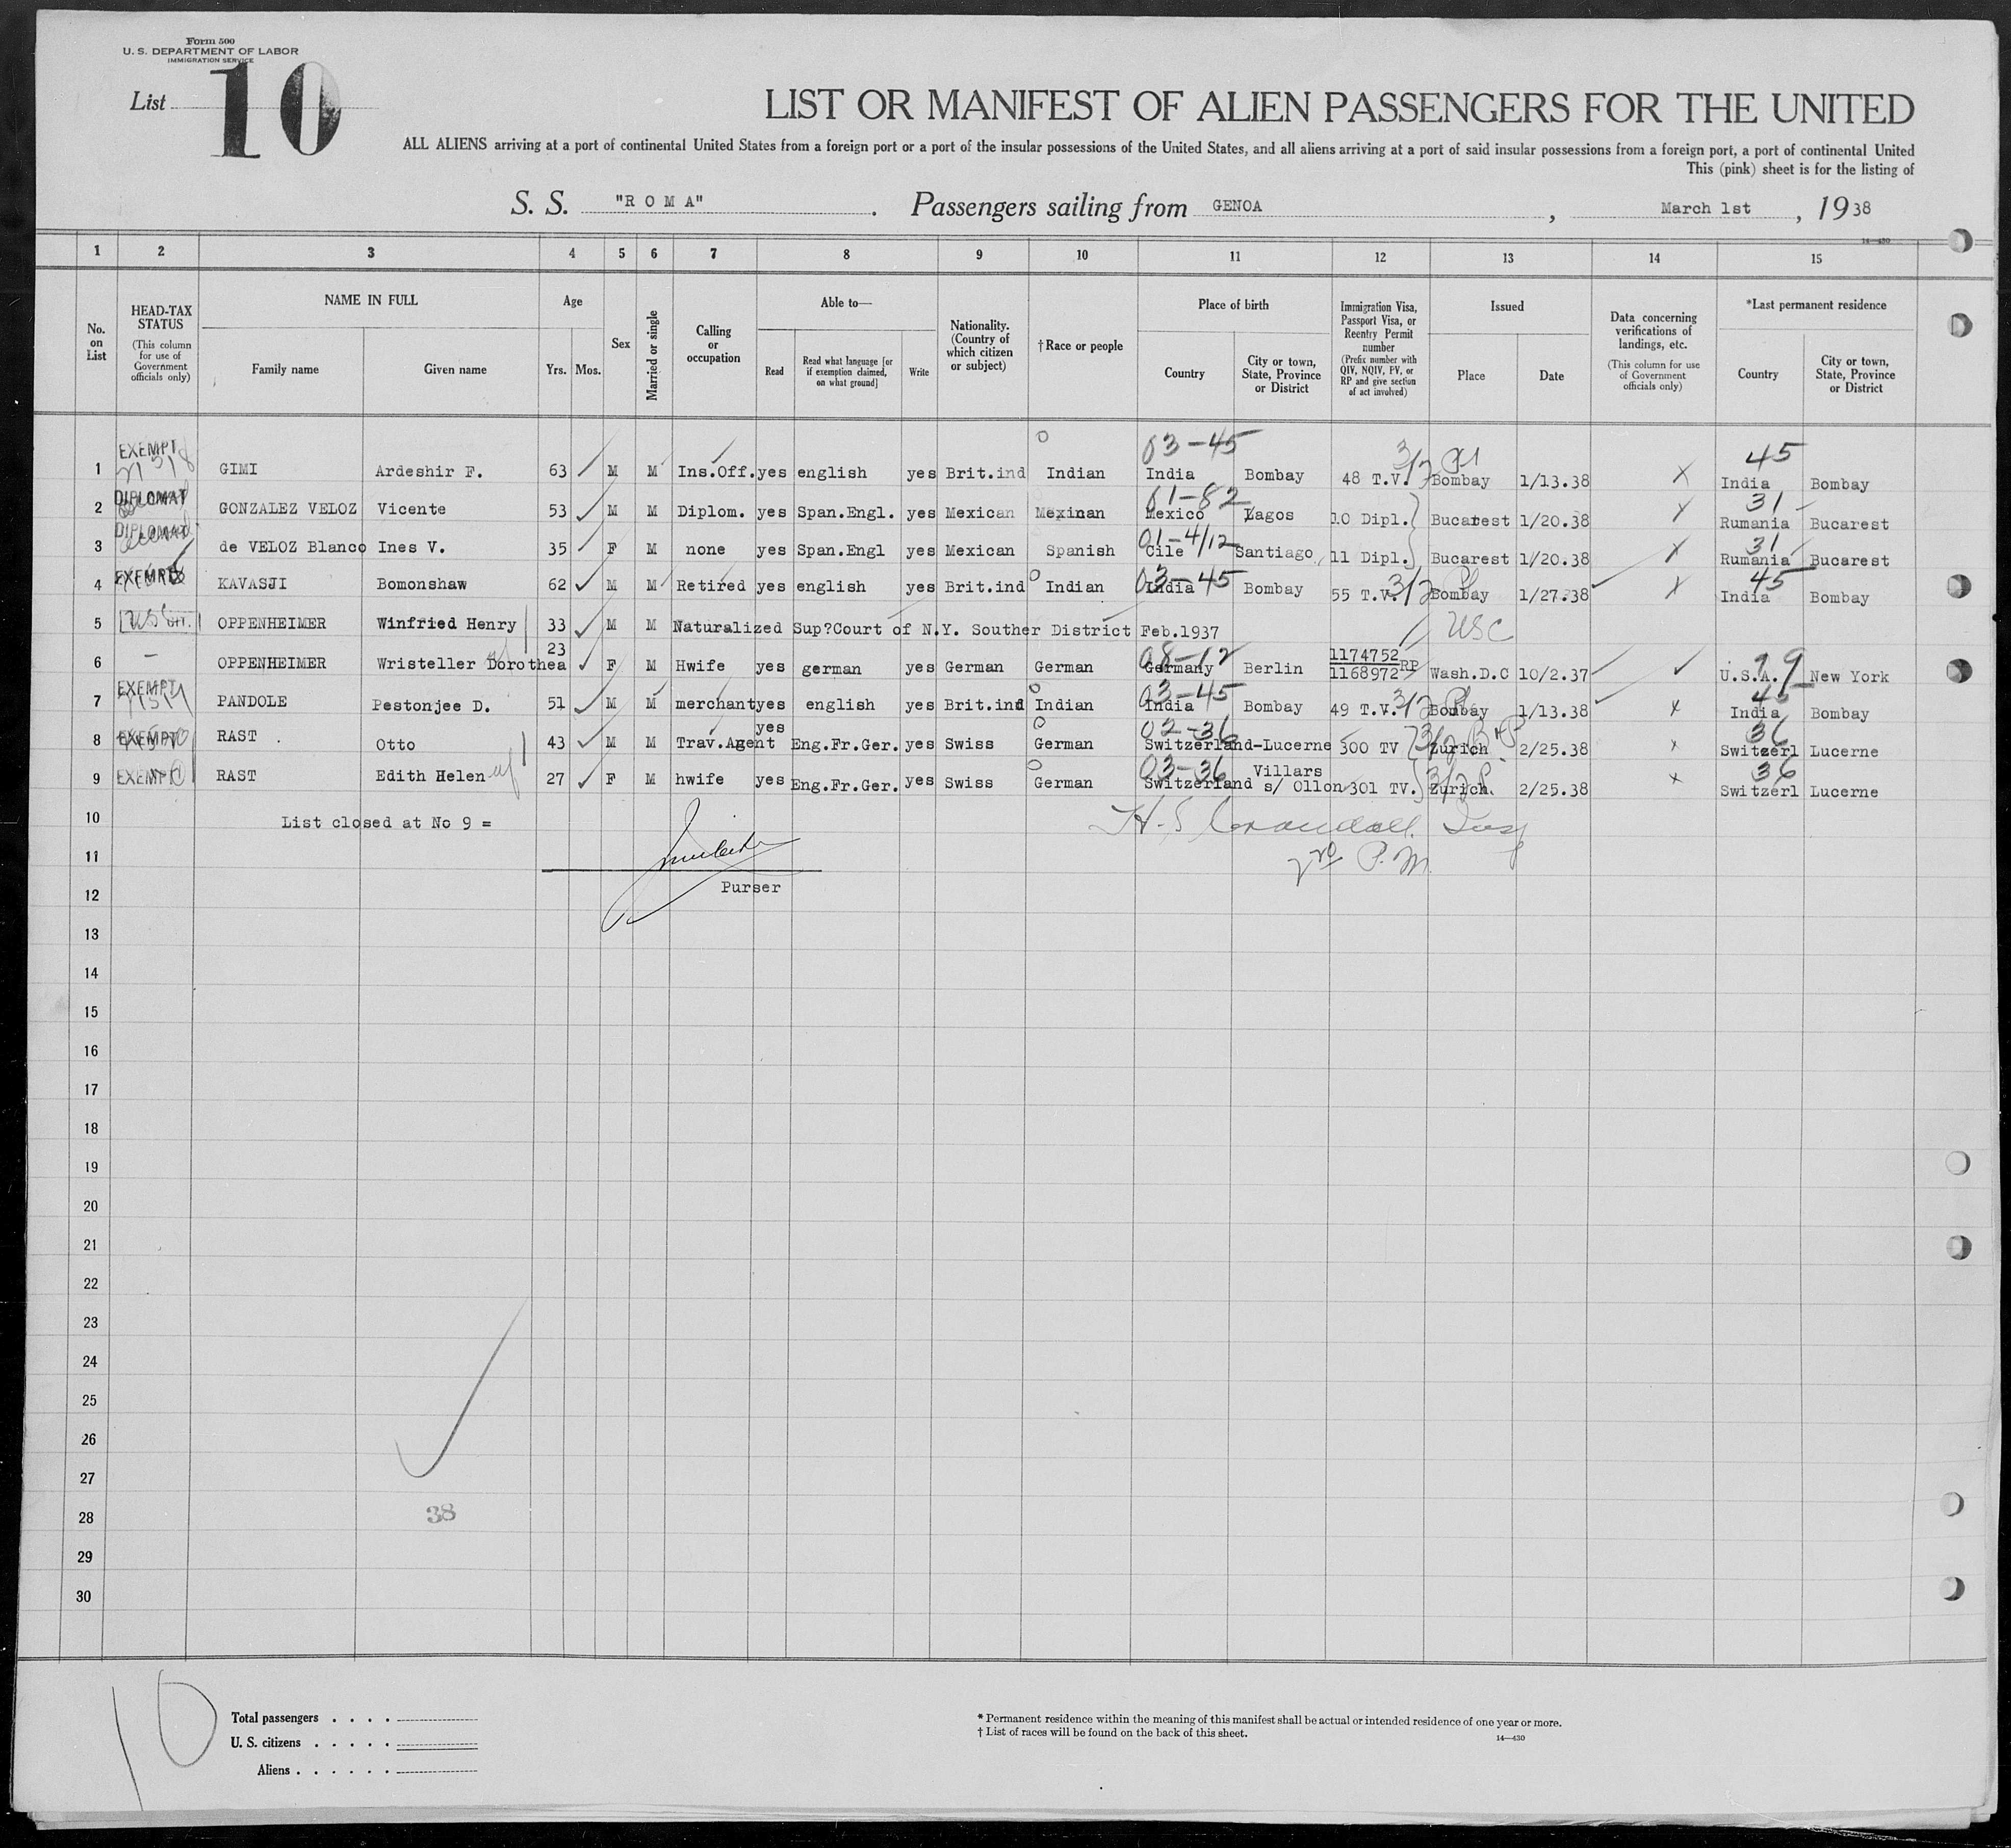 Form 500
U. S. DEPARTMENT OF LABOR
IMMIGRATION SERVICE
List 10
LIST OR MANIFEST OF ALIEN PASSENGERS FOR THE UNITED
ALL ALIENS arriving at a port of continental United States from a foreign port or a port of the insular possessions of the United States, and all aliens arriving at a port of said insular possessions from a foreign port, a port of continental United
This (pink) sheet is for the listing of
S. S. "R O M A" . Passengers sailing from GENOA , March 1st , 1938
14—430
1 2 3 4 5 6 7 8 9 10 11 12 13 14 15
No. on List
HEAD-TAX STATUS
(This column for use of Government officials only)
NAME IN FULL
Family name
Given name
Age
Yrs.
Mos.
Sex
Married or single
Calling or occupation
Able to—
Read
Read what language [or if exemption claimed, on what ground]
Write
Nationality. (Country of which citizen or subject)
†Race or people
Place of birth
Country
City or town, State, Province or District
Immigration Visa, Passport Visa, or Reentry Permit number
(Prefix number with QIV, NQIV, PV, or RP and give section of act involved)
Issued
Place
Date
Data concerning verifications of landings, etc.
(This column for use of Government officials only)
*Last permanent residence
Country
City or town, State, Province or District
03-45 45
1 EXEMPT GIMI Ardeshir F. 63 M M Ins.Off. yes english yes Brit.ind Indian India Bombay 48 T.V. 3/2 Bombay 1/13.38 X India Bombay
01-82 31
2 DIPLOMAT GONZALEZ VELOZ Vicente 53 M M Diplom. yes Span.Engl. yes Mexican Mexican Mexico Lagos 10 Dipl. Bucarest 1/20.38 Rumania Bucarest
01-4/12 31
3 DIPLOMAT de VELOZ Blanco Ines V. 35 F M none yes Span.Engl yes Mexican Spanish Cile Santiago 11 Dipl. Bucarest 1/20.38 X Rumania Bucarest
03-45 45
4 EXEMPT KAVASJI Bomonshaw 62 M M Retired yes english yes Brit.ind Indian India Bombay 55 T.V. 3/2 Bombay 1/27.38 X India Bombay
5 OPPENHEIMER Winfried Henry 33 M M Naturalized Sup?Court of N.Y. Souther District Feb.1937 USC
08-12 79
6 — OPPENHEIMER Wristeller Dorothea 23 F M Hwife yes german yes German German Germany Berlin 1174752 1168972 RP Wash.D.C 10/2.37 U.S.A. New York
03-45 45
7 EXEMPT PANDOLE Pestonjee D. 51 M M merchant yes english yes Brit.ind Indian India Bombay 49 T.V. 3/2 Bombay 1/13.38 X India Bombay
02-36 36
8 EXEMPT RAST Otto 43 M M Trav.Agent yes Eng.Fr.Ger. yes Swiss German Switzerland-Lucerne 300 TV Zurich 2/25.38 X Switzerl Lucerne
03-36 36
9 EXEMPT RAST Edith Helen 27 F M hwife yes Eng.Fr.Ger. yes Swiss German Switzerland Villars s/ Ollon 301 TV. Zurich. 2/25.38 X Switzerl Lucerne
10 List closed at No 9 = H. S Crandall
11 P. M.
12 Purser
13
14
15
16
17
18
19
20
21
22
23
24
25
26
27
28 38
29
30
10
Total passengers
U. S. citizens
Aliens
* Permanent residence within the meaning of this manifest shall be actual or intended residence of one year or more.
† List of races will be found on the back of this sheet.
14—430